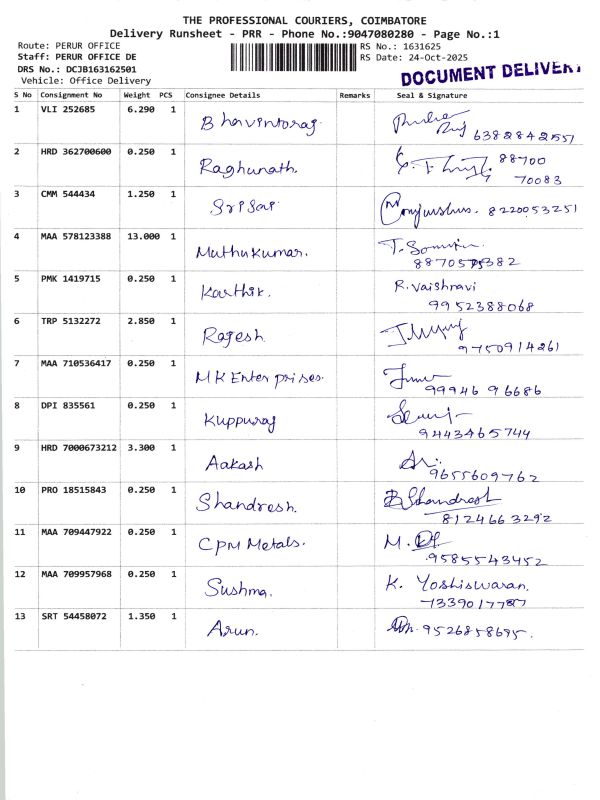 THE PROFESSIONAL COURIERS, COIMBATORE
Delivery Runsheet - PRR - Phone No.:9047080280 - Page No.:1
Route: PERUR OFFICE
RS No.: 1631625
Staff: PERUR OFFICE DE
RS Date: 24-Oct-2025
DRS No.: DCJB163162501
Vehicle: Office Delivery
DOCUMENT DELIVERY
S No Consignment No Weight PCS Consignee Details Remarks Seal & Signature
1 VLI 252685 6.290 1 Bhavintoraj 6382842551
2 HRD 362700600 0.250 1 Raghunath. 88700
70083
3 CMM 544434 1.250 1 Sri Sai 8220053251
4 MAA 578123388 13.000 1 Muthukumar.
5 PMK 1419715 0.250 1 Karthik. R. Vaishnavi
9952388068
6 TRP 5132272 2.850 1 Rajesh.
9750914261
7 MAA 710536417 0.250 1 MK Enterprises.
99946 96686
8 DPI 835561 0.250 1 Kuppuraj
9443465744
9 HRD 7000673212 3.300 1 Aakash
9655609762
10 PRO 18515843 0.250 1 Shandresh. Shandresh
8124663292
11 MAA 709447922 0.250 1 CPM Metals. M.
9585543452
12 MAA 709957968 0.250 1 Sushma. K. Yoshiswaran.
13 SRT 54458072 1.350 1 Arun. 9526858695.